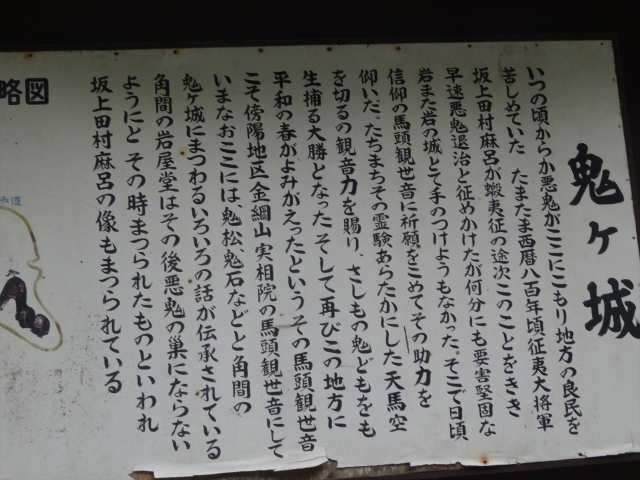 鬼ヶ城
いつの頃からか悪鬼がここにこもり地方の良民を
苦しめていた たまたま西暦八百年頃征夷大将軍
坂上田村麻呂が蝦夷征の途次このことをきき
早速悪鬼退治と征めかけたが何分にも要害堅固な
岩また岩の城とて手のつけようもなかった。そこで日頃
信仰の馬頭観世音に祈願をこめてその助力を
仰いだ。たちまちその霊験あらたかにした天馬空
を切るの観音力を賜り、さしもの鬼どもをも
生捕る大勝となった そして再びこの地方に
平和の春がよみがえったというその馬頭観世音
こそ傍陽地区金綱山実相院の馬頭観世音にして
いまなおここには、鬼松鬼石などと角間の
鬼ヶ城にまつわるいろいろの話が伝承されている
角間の岩屋堂はその後悪鬼の巣にならない
ようにと その時まつられたものといわれ
坂上田村麻呂の像もまつられている
略図
歩道